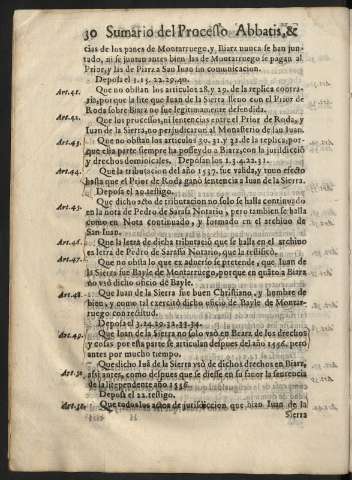 30 Sumario del Processo Abbatis, &
cias de los panes de Montarruego, y Biarz nunca se han jun-
tado, ni se juntan antes bien las de Montarruego se pagan al
Prior, y las de Piarz a San Iuan sin comunicacion.
Deposa el 3. 15. 22. 29. 40.
Art. 41. Que no obstan los articulos 28. y 29. de la replica contra-
ria, porque la lite que Iuan de la Sierra lleuo con el Prior de
Roda sobre Biarz no fue legitimamente defendida.
Art. 42. Que los processos, ni sentencias entre el Prior de Roda, y
Iuan de la Sierra, no perjudicaron al Monasterio de san Iuan.
Art. 43. Que no obstan los articulos 30. 31. y 32. de la replica, por-
que esta parte siempre ha posseydo a Biarz, con la jurisdictiō
y drechos domicales. Deposan los 1. 3. 4. 22. 31.
Art. 44. Que la tributacion del año 1537. fue valida, y tuuo efecto
hasta que el Prior de Roda ganò sentencia a Iuan de la Sierra.
Deposa el 20. testigo.
Art. 45. Que dicho acto de tributacion no solo se halla continuado
en la nota de Pedro de Sarasa Notario, pero tambien se halla
como en Nota continuado, y formado en el archiuo de
San Iuan.
Art. 46. Que la letra de dicha tributaciō que se halla en el archiuo
es letra de Pedro de Sarassa Notario, que la testificò.
Art. 47. Que no obsta lo que ex aduerso se pretende, que Iuan de
la Sierra fue Bayle de Montarruego, porque en quāto a Biarz
no vsò dicho oficio de Bayle.
Art. 48. Que Iuan de la Sierra fue buen Christiano, y hombre de
bien, y como tal exercitò dicho oficio de Bayle de Montar-
ruego con rectitud.
Deposa el 3. 24. 29. 32. 33. 34.
Art. 49. Que Ioan de la Sierra no solo vsò en Bearz de los drechos
y cosas por esta parte se articulan despues del año 1556. pero
antes por mucho tiempo.
Art. 50. Que dicho Iuā de la Sierra vsò de dichos drechos en Biarz,
assi antes, como despues que se diesse en su fauor la sentencia
de la litependente año 1556.
Deposa el 22. testigo.
Que todos los actos de jurisdiccion que hizo Iuan de la
Sierra